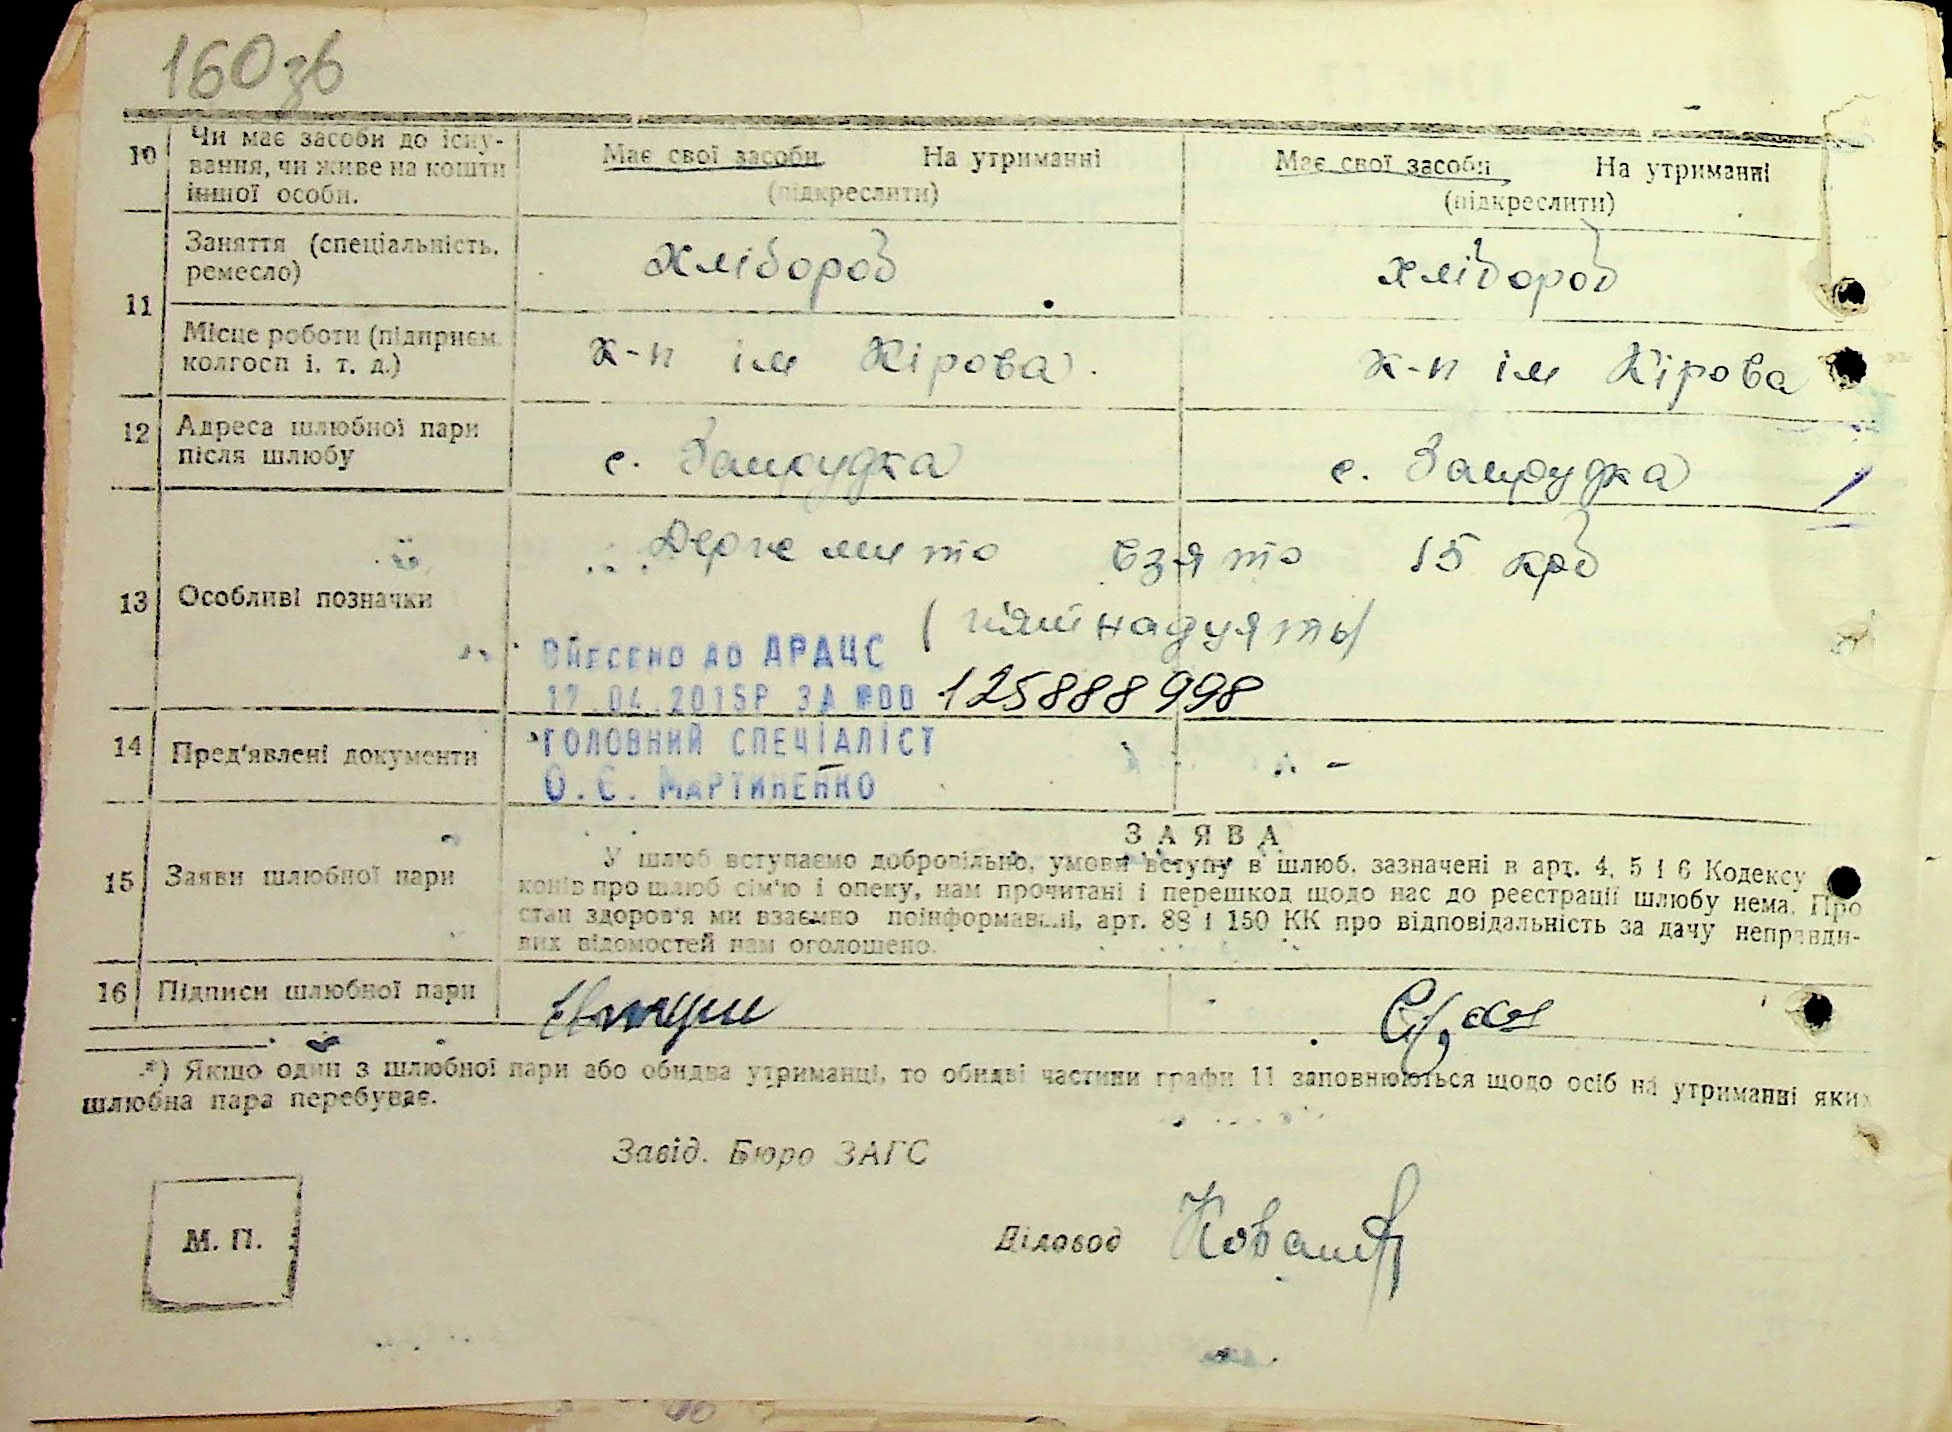 160 зв
10 Чи має засоби до існу-
вання, чи живе на кошти
іншої особи.
Має свої засоби На утриманні
(підкреслити)
Має свої засоби На утриманні
(підкреслити)
11 Заняття (спеціальність,
ремесло)
Хлібороб
хлібороб
Місце роботи (підприєм.
колгосп і. т. д.)
к-п ім Кірова
к-п ім Кірова
12 Адреса шлюбної пари
після шлюбу
с.
с.
13 Особливі позначки
Держ мито взято 15 крб
(п'ятнадцять)
ВНЕСЕНО ДО ДРАЦС
17.04.2015Р ЗА №00 125888998
ГОЛОВНИЙ СПЕЦІАЛІСТ
О.Є. МАРТИНЕНКО
14 Пред'явлені документи
–
15 Заяви шлюбної пари
ЗАЯВА
У шлюб вступаємо добровільно, умови вступу в шлюб, зазначені в арт. 4, 5 і 6 Кодексу
конів про шлюб сім'ю і опеку, нам прочитані і перешкод щодо нас до реєстрації шлюбу нема. Про
стан здоров'я ми взаємно поінформовані, арт. 88 і 150 КК про відповідальність за дачу неправди-
вих відомостей нам оголошено.
16 Підписи шлюбної пари
*) Якщо один з шлюбної пари або обидва утриманці, то обидві частини графи 11 заповнюються щодо осіб на утриманні яких
шлюбна пара перебуває.
Завід. Бюро ЗАГС
М. П.
Діловод